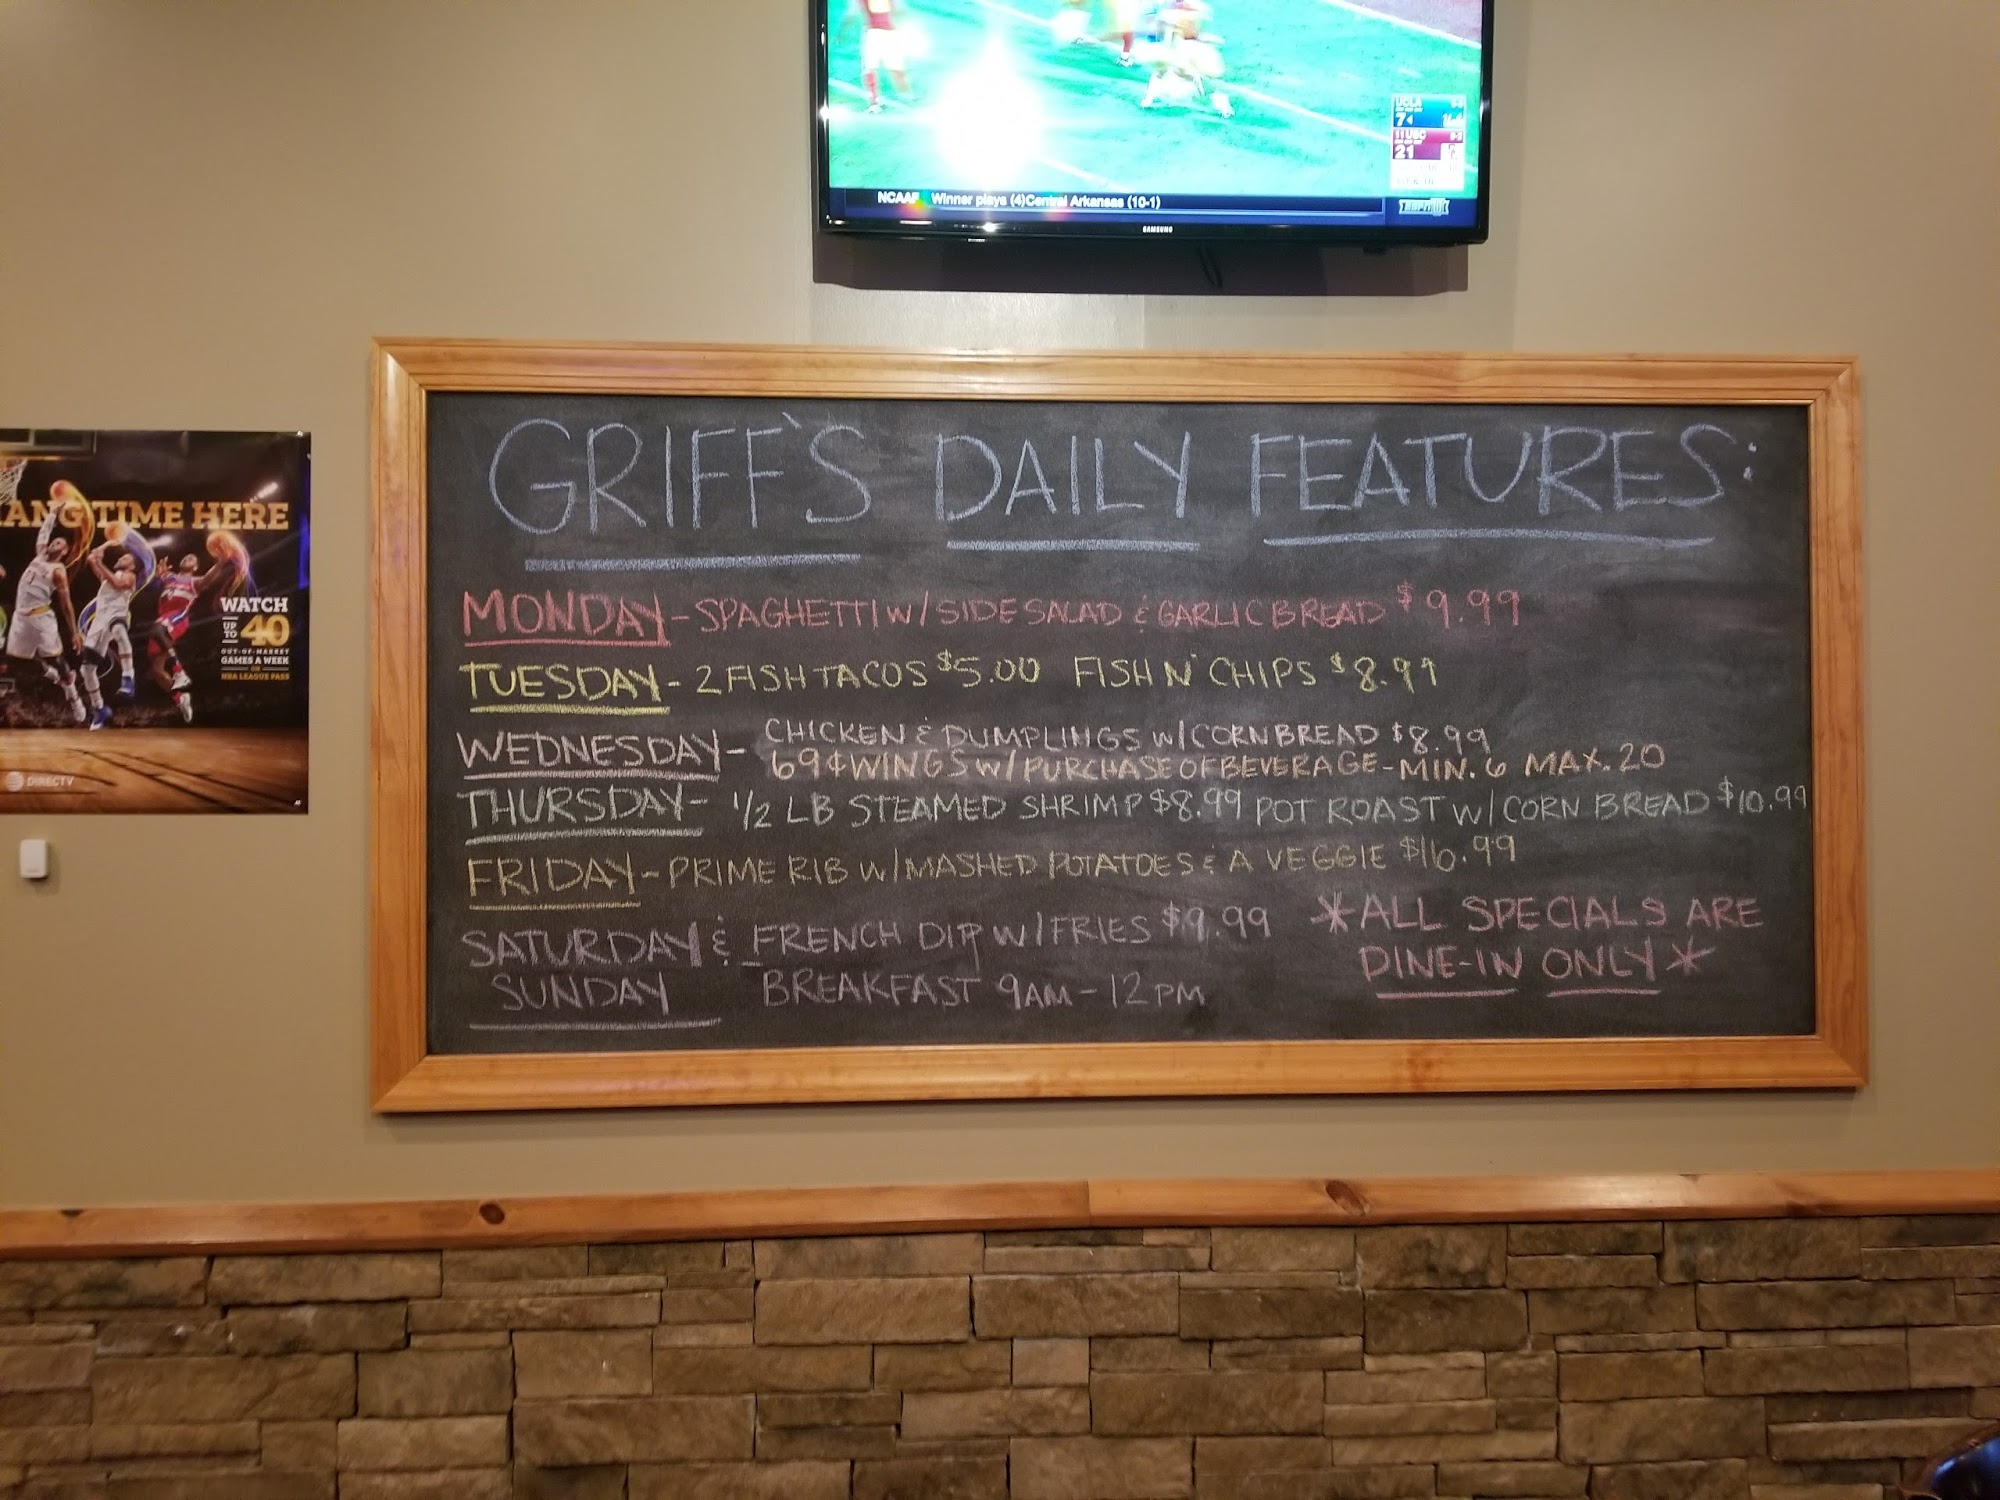 UCLA
7
11 USC
21
NCAAF Winner plays (4)Central Arkansas (10-1)
SAMSUNG
GRIFF'S DAILY FEATURES:
MONDAY - SPAGHETTI W/ SIDE SALAD & GARLIC BREAD $9.99
TUESDAY - 2 FISH TACOS $5.00 FISH N' CHIPS $8.99
WEDNESDAY - CHICKEN & DUMPLINGS W/ CORN BREAD $8.99
69¢ WINGS W/ PURCHASE OF BEVERAGE - MIN. 6 MAX. 20
THURSDAY - 1/2 LB STEAMED SHRIMP $8.99 POT ROAST W/ CORN BREAD $10.99
FRIDAY - PRIME RIB W/ MASHED POTATOES & A VEGGIE $16.99
SATURDAY & FRENCH DIP W/ FRIES $9.99
SUNDAY BREAKFAST 9AM - 12PM
*ALL SPECIALS ARE
DINE-IN ONLY*
ANG TIME HERE
WATCH
UP TO 40
OUT-OF-MARKET
GAMES A WEEK
ON
NBA LEAGUE PASS
DIRECTV